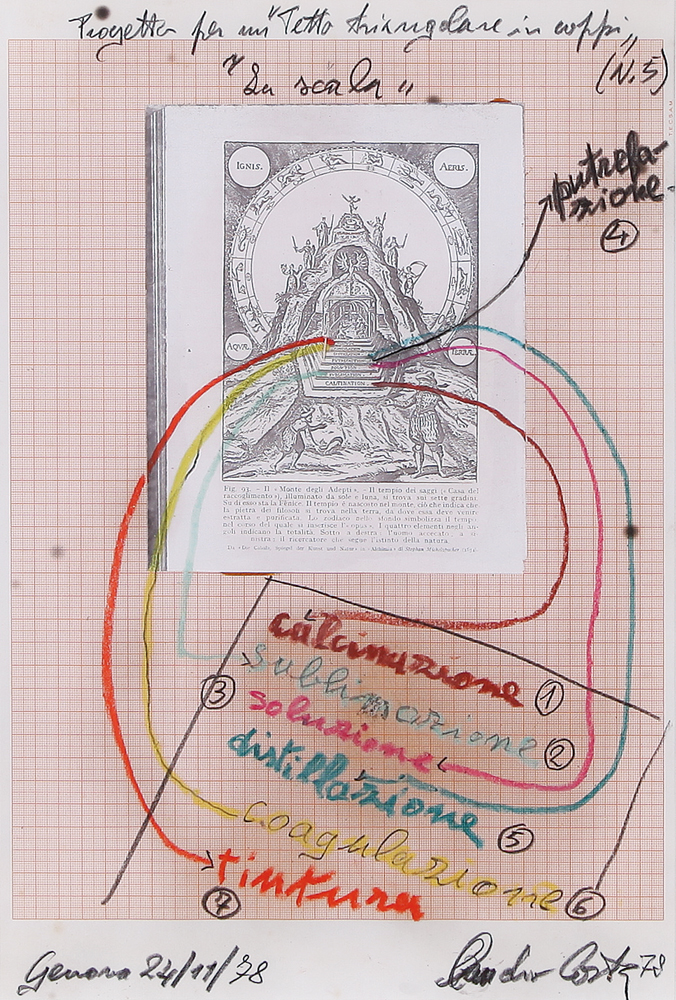 Progetto per un "Tetto triangolare in coppi"
"La scala"
(N. 5)
TECSAM
IGNIS.
AERIS.
putrefa-
zione
4
AQVÆ
TERRÆ
CALCINATION
Fig. 93. – Il «Monte degli Adepti». – Il tempio dei saggi («Casa del
raccoglimento»), illuminato da sole e luna, si trova sui sette gradini.
Su di esso sta la Fenice. Il tempio è nascosto nel monte, ciò che indica che
la pietra dei filosofi si trova nella terra, da dove essa deve venir
estratta e purificata. Lo zodiaco nello sfondo simbolizza il tempo
nel corso del quale si inserisce l'«opus». I quattro elementi negli an-
goli indicano la totalità. Sotto a destra: l'uomo accecato, a si-
nistra: il ricercatore che segue l'istinto della natura.
calcinazione 1
sublimazione 2
3 soluzione
distillazione 5
coagulazione 6
tintura
7
Genova 24/11/78
78